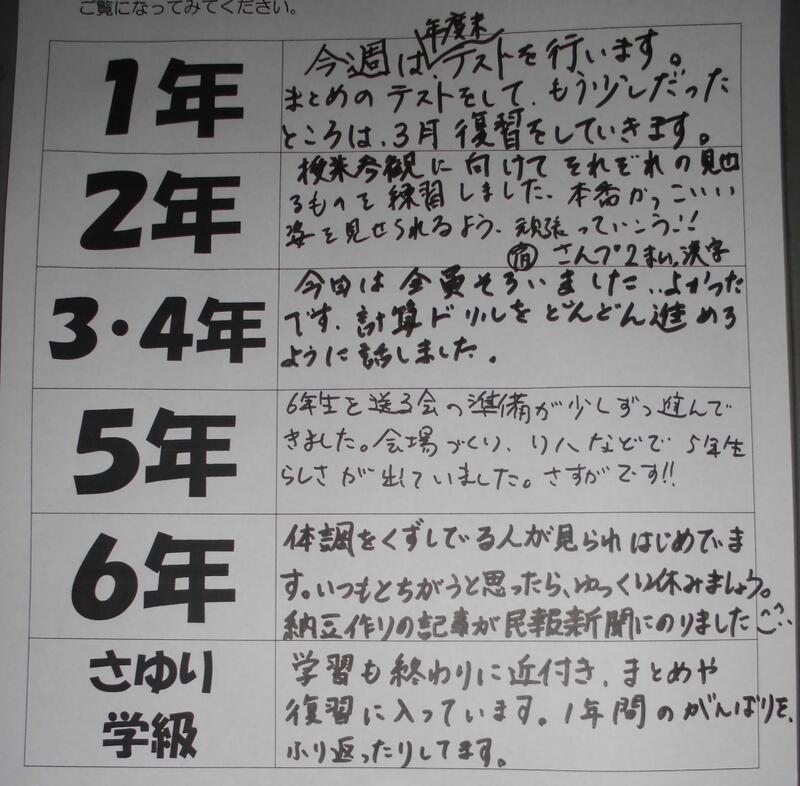 ご覧になってみてください。
1年
今週は年度末テストを行います。
まとめのテストをして、もう少しだった
ところは、3月復習をしていきます。
2年
授業参観に向けてそれぞれの見せ
るものを練習しました。本番かっこいい
姿を見せられるよう、頑張っていこう!!
宿 さんプ2まい、漢字
3・4年
今日は全員そろいました‥よかった
です。計算ドリルをどんどん進める
ように話しました。
5年
6年生を送る会の準備が少しずつ進んで
きました。会場づくり、リハなどで5年生
らしさが出ていました。さすがです!!
6年
体調をくずしてる人が見られはじめてま
す。いつもとちがうと思ったら、ゆっくり休みましょう。
納豆作りの記事が民報新聞にのりました
さゆり
学級
学習も終わりに近付き、まとめや
復習に入っています。1年間のがんばりを、
ふり返ったりしてます。